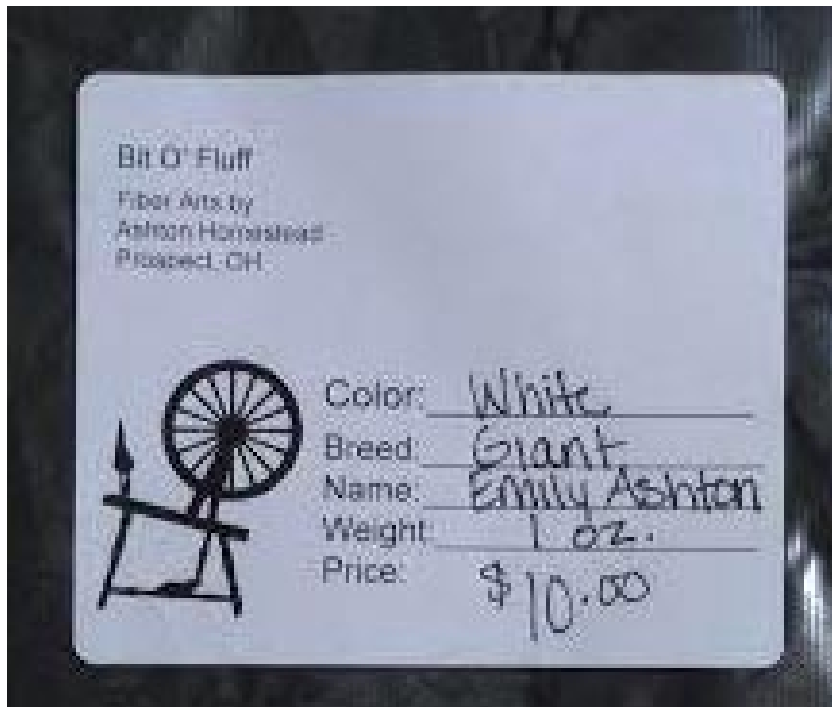 Bit O' Fluff
Fiber Arts by
Ashton Homestead
Prospect, OH
Color: White
Breed: Giant
Name: Emily Ashton
Weight: 1 oz.
Price: $10.00